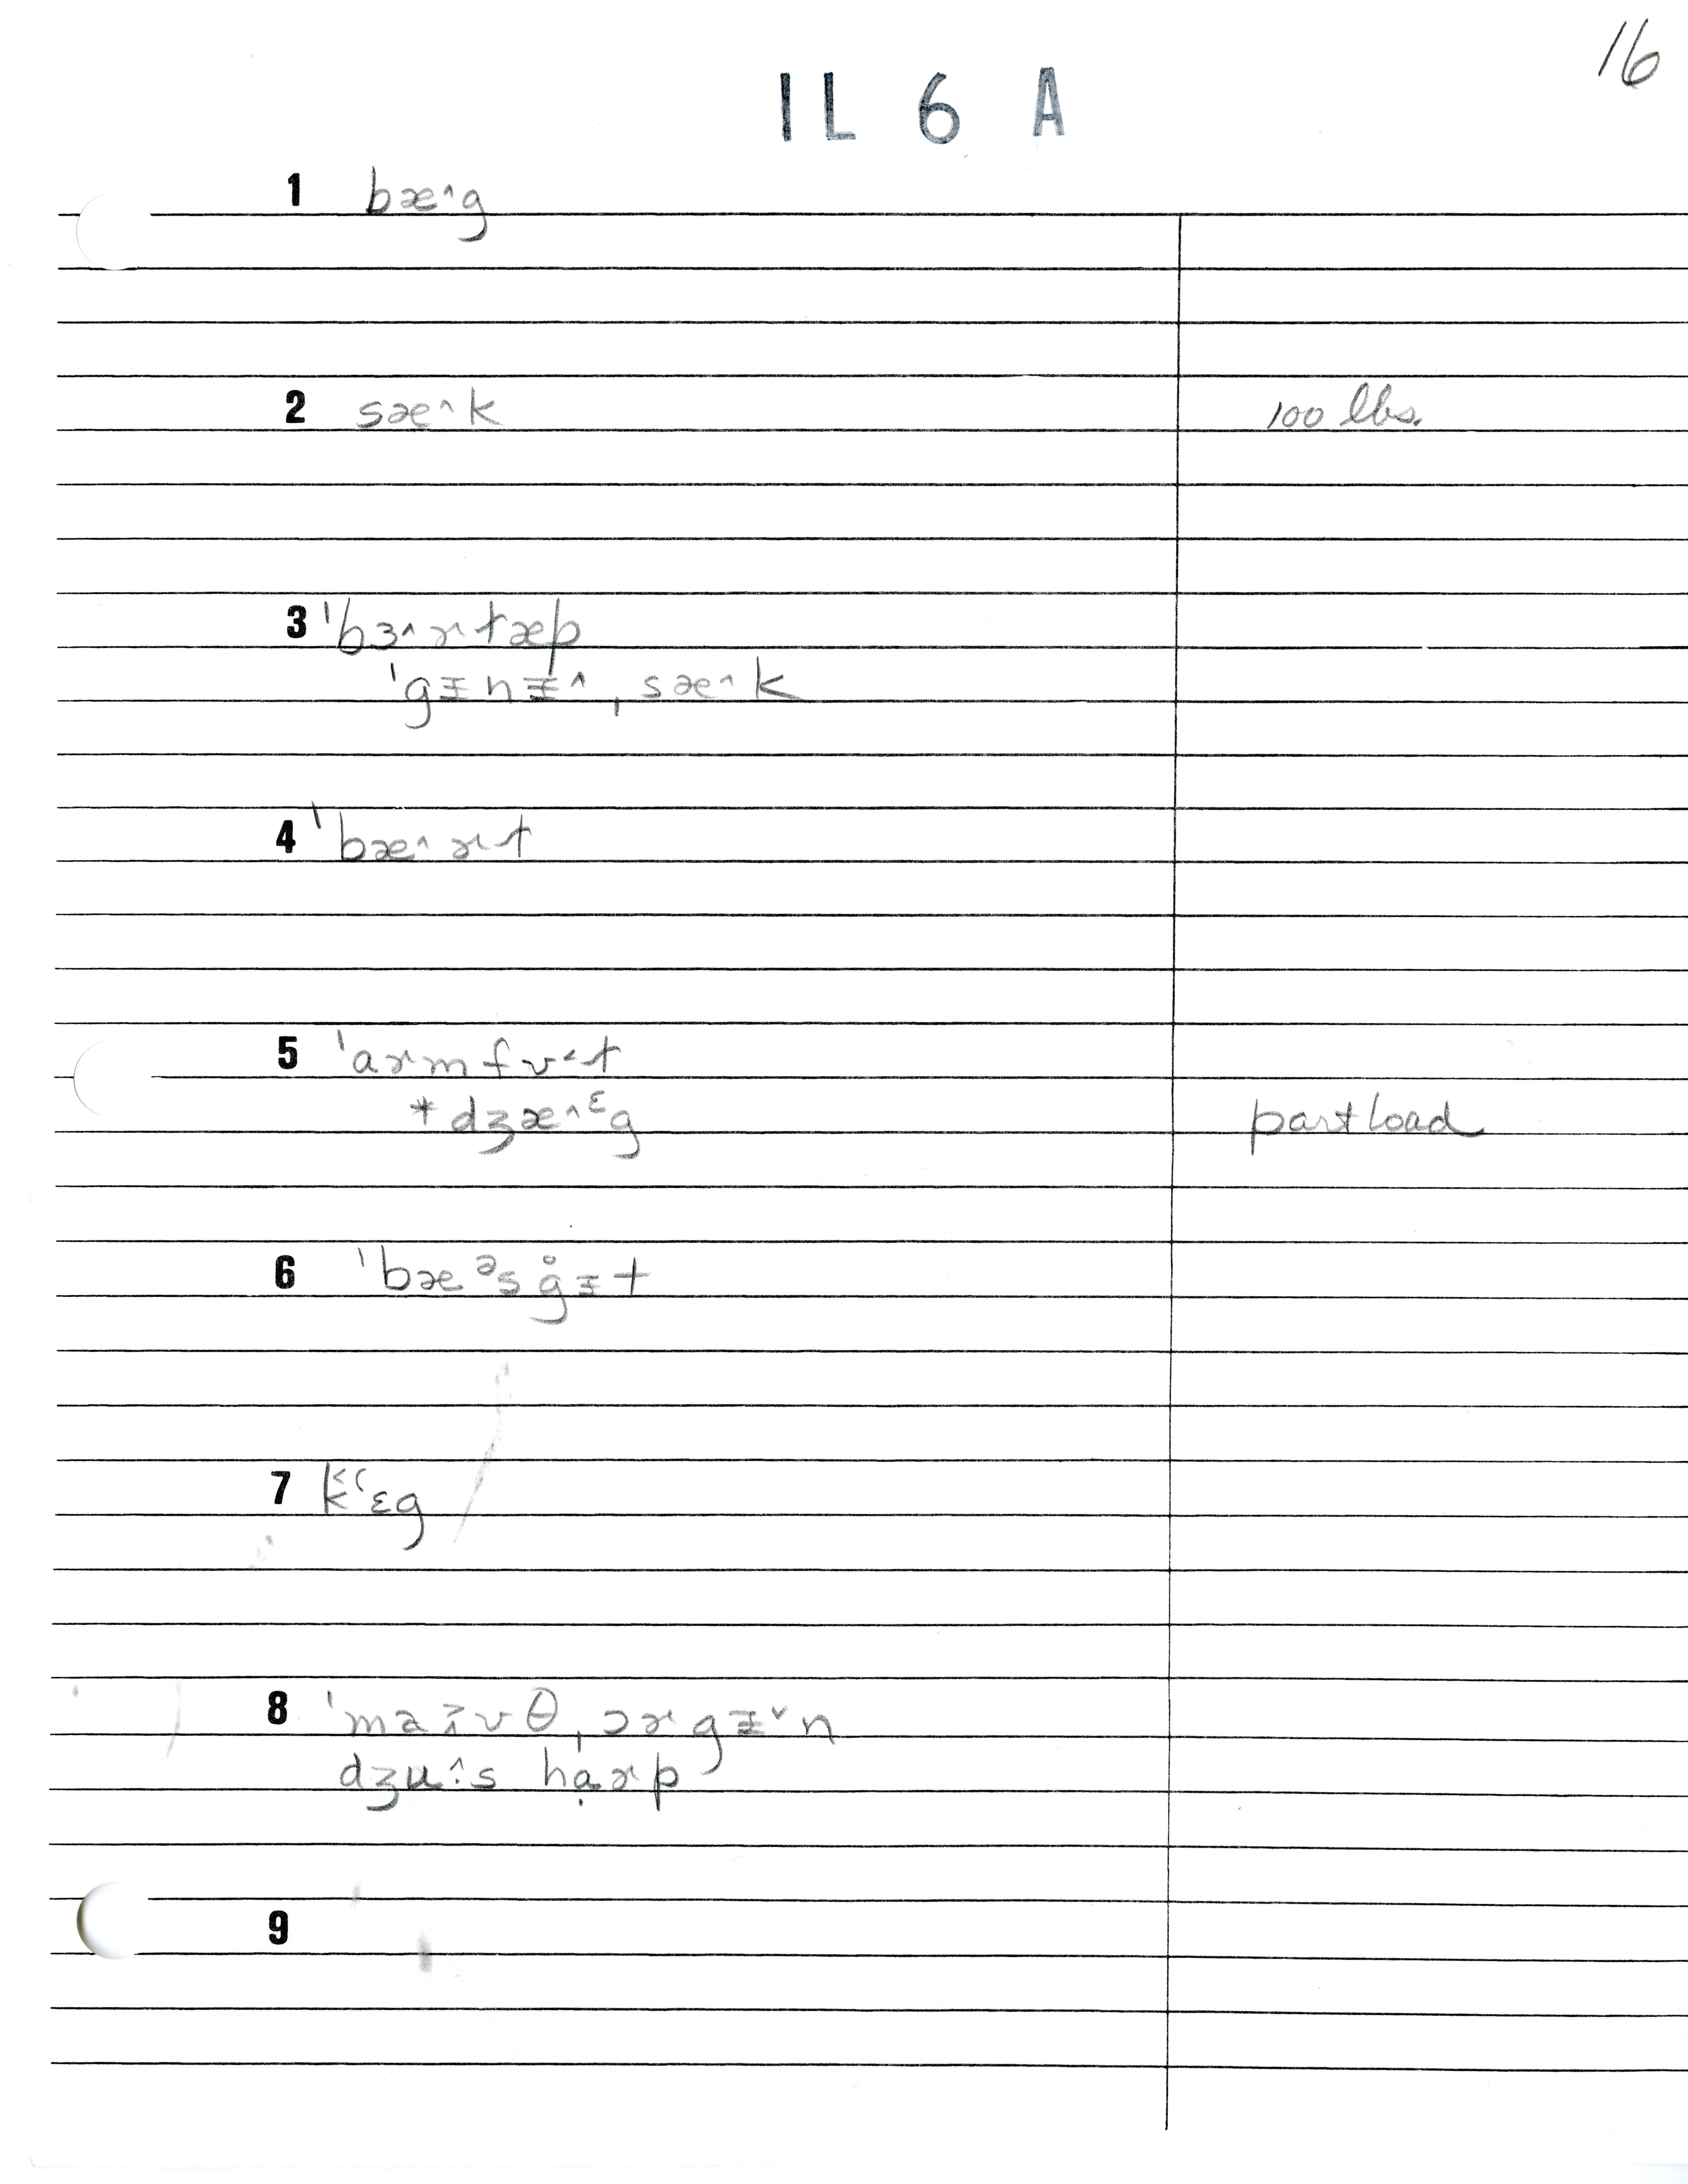 16
IL 6 A
1 bæ^g
2 sæ^k 100 lbs.
3 ˈbɜ^ɚtæp
ˈgɪ̵nɪ̵^ˌsæ^k
4 ˈbæ^ɚt
5 ˈaɚmfʊ˂t
*dʒæ^ᵋg part load
6 ˈbæᵊsg̊ɪ̵t
7 k˂ʻɛg
8 ˈmaɪ˃ʊθˌɔɚgɪ̵ˇn
dʒu^·s hạɚp
9